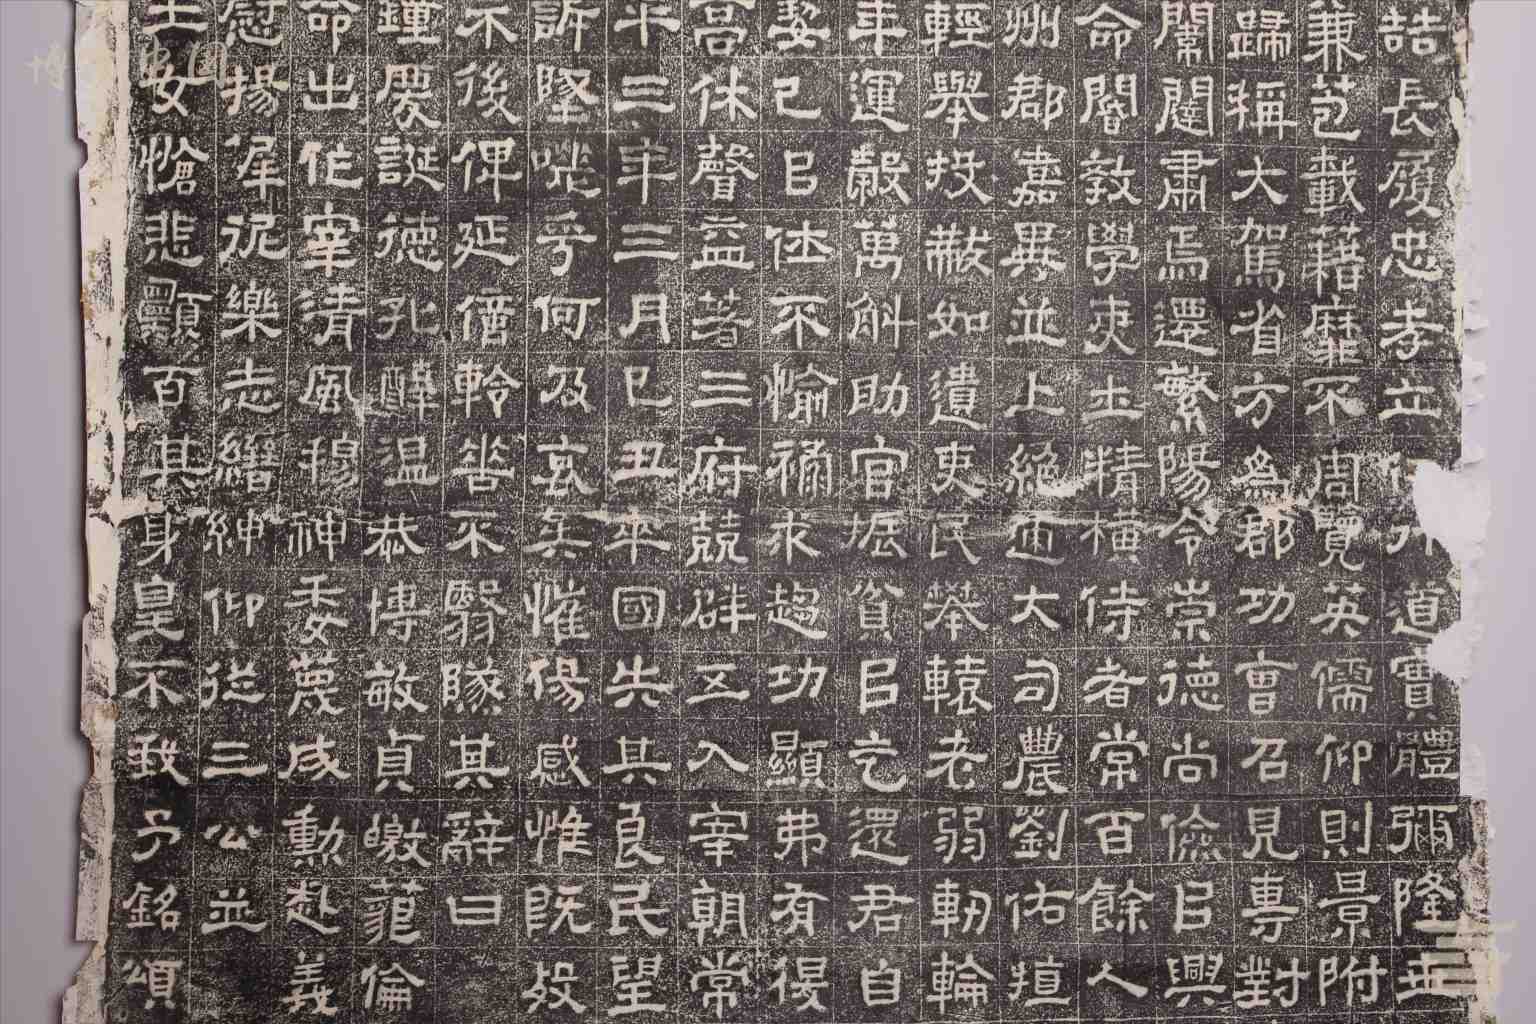 喆長履忠孝立道實體彌隆並
兼苞載籍靡不周覽英儒仰則景附
歸稱大駕省方為郡功曹召見專對
闈闥肅焉還繁陽令崇德尚儉㠯興
命閽敎學吏士精橫侍者常百餘人
州郡嘉異並上絕大司農劉佑
輕舉投黻如遺吏民攀轅老弱軵輪
年運穀萬斛助官振貧㠯乞還君自
絜己㠯仕不愉祿求趨功顯弗有得
高休聲益著三府競辟五入宰朝常
平三年三月己丑卒國失其良民望
訴墜咷乎何及哀矣摧傷感惟旣歿
不後俾延僭軨不翳隧其辭曰
鍾慶誕德孔醇溫恭博敏貞皦倫
命出作宰清風穆神委蔑成勳赴義
慰揚樂志縉紳仰從三公並
士女愴悲顥百其身皇不我予銘頌